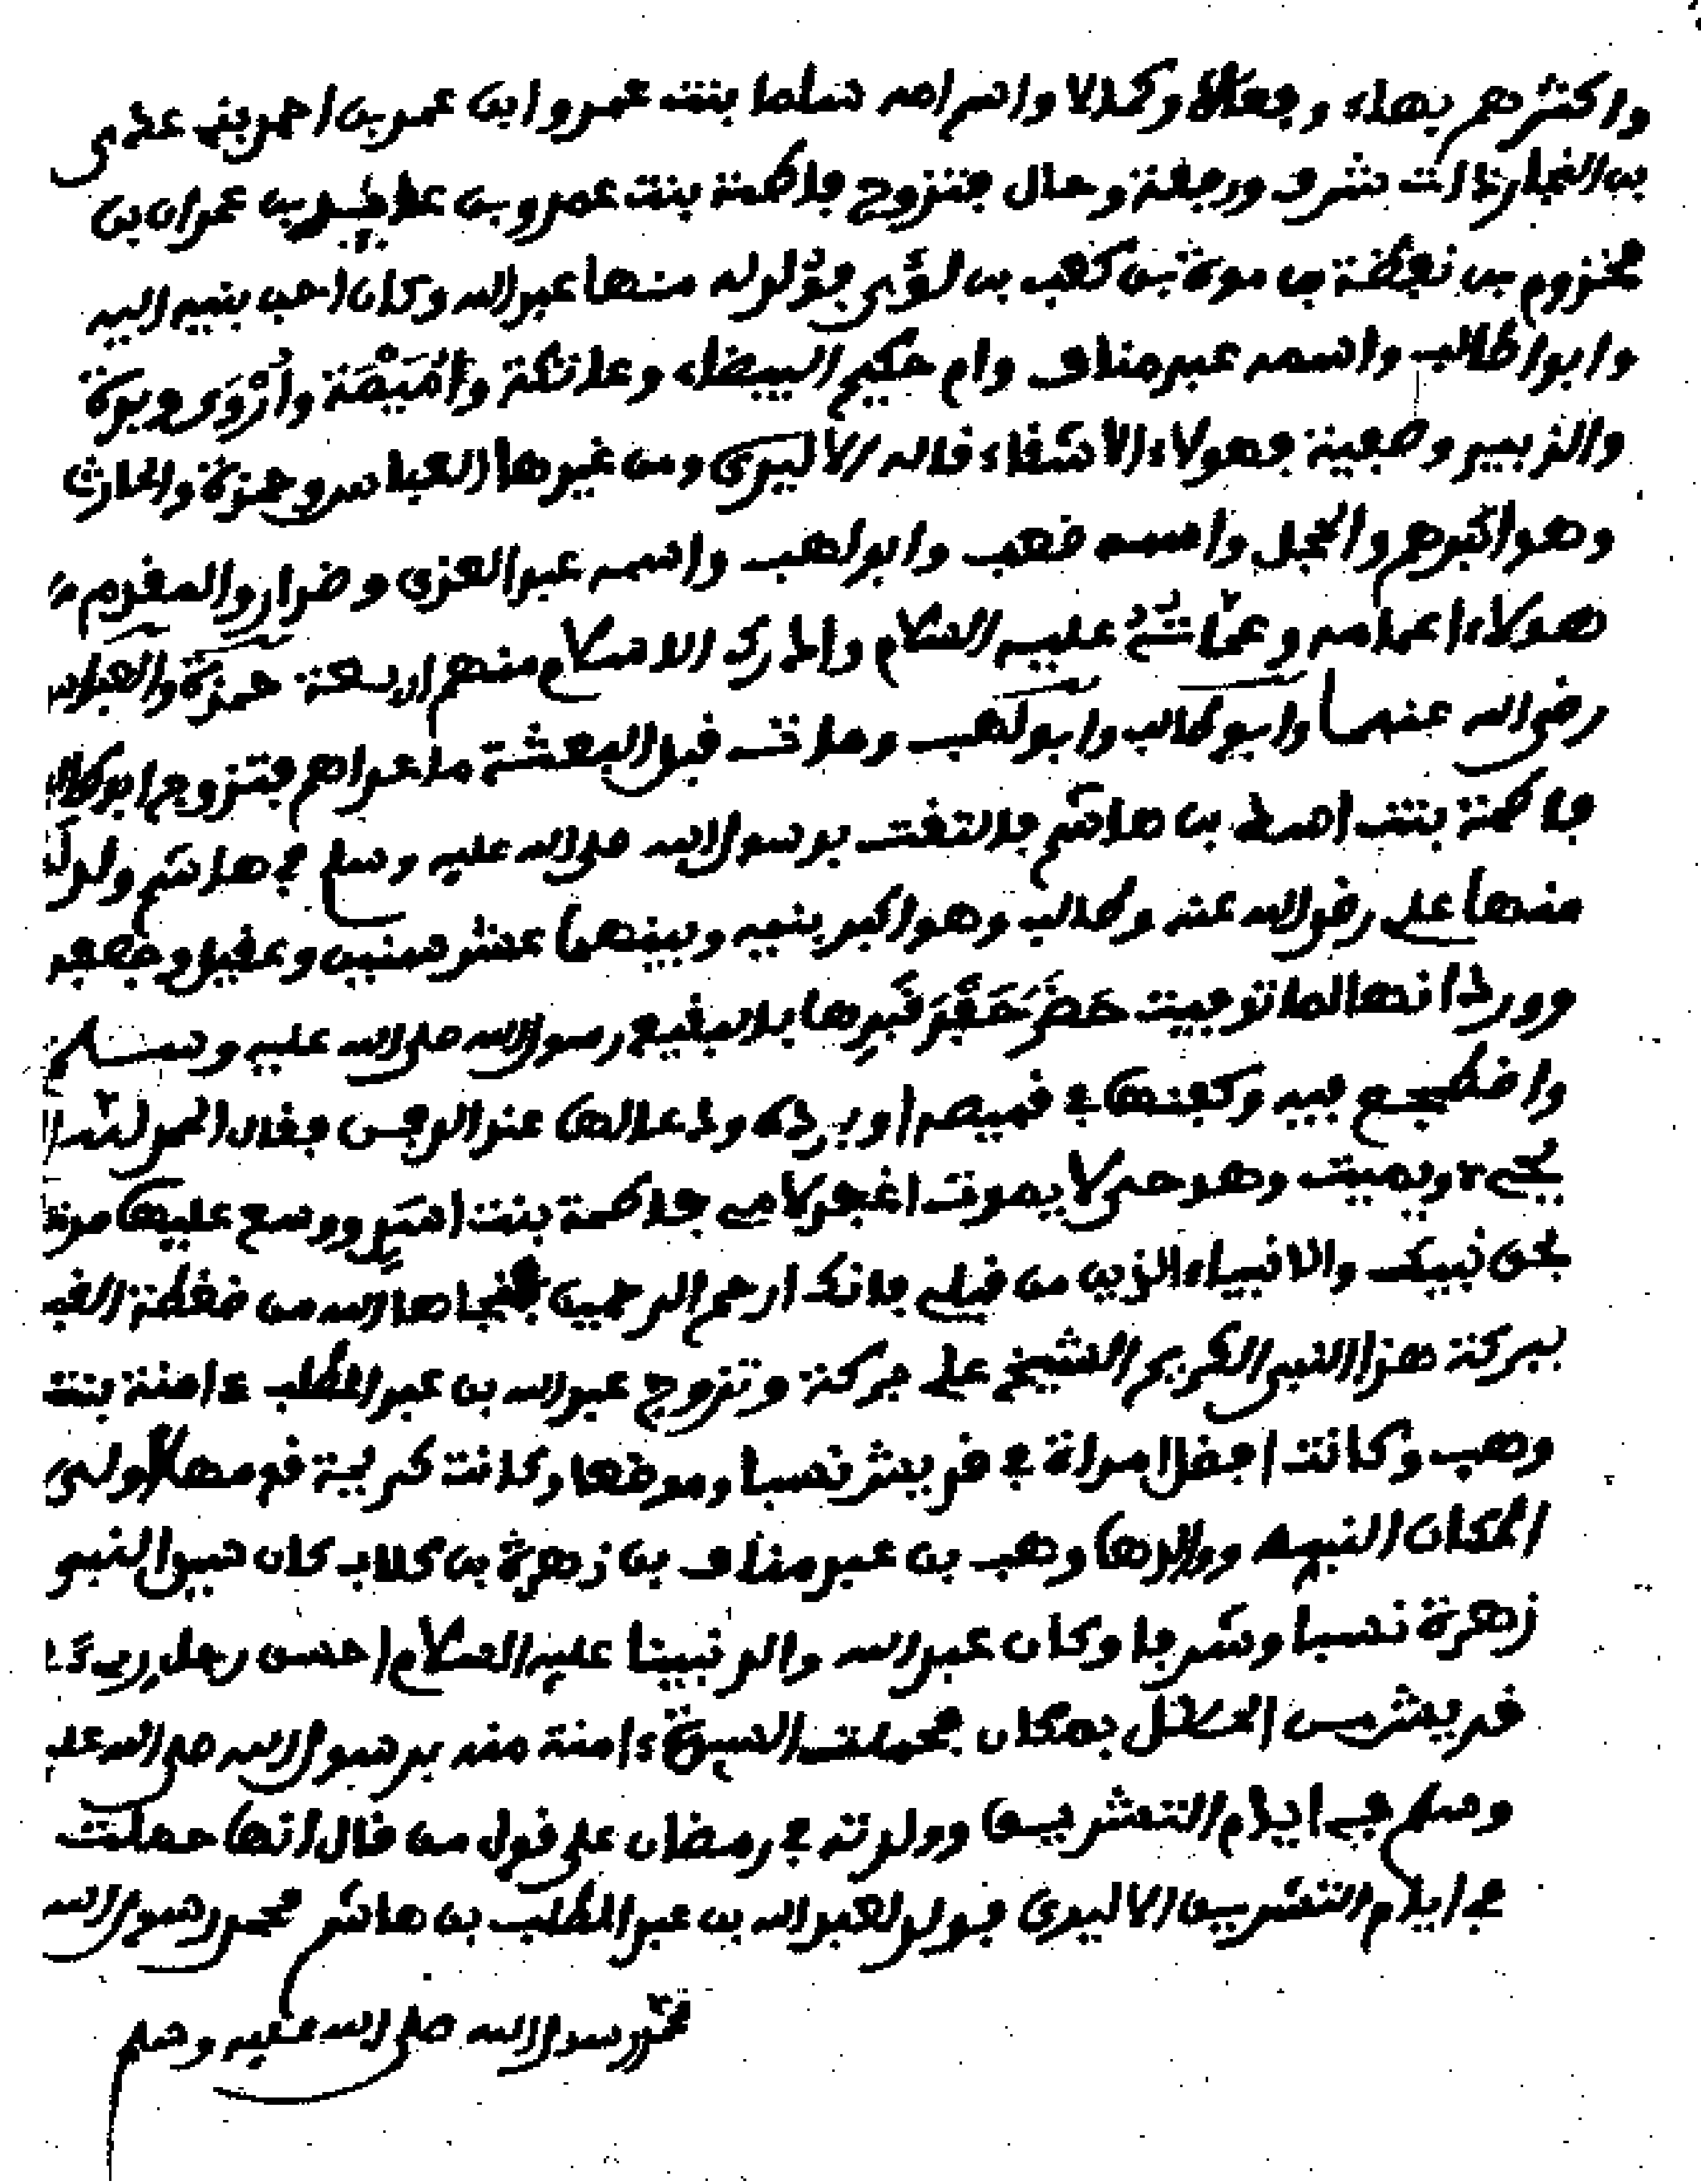 واكثرهم بهاء وجمالا وكمالا واسم امه سلما بنت عمرو ابن عمر بن احمر بني عدي
بن النجار ذات شرف ورفعة وحال فتزوج فاطمة بنت عمرو بن عايد بن عمران بن
مخزوم بن نقظة بن مرة بن كعب بن لؤي فولد له منها عبد الله وكان احب بنيه اليه
وابوا طالب واسمه عبد مناف وام حكيم البيضاء وعاتكة واميمة وأروى وبرة
والزبير وصفية فهولاء الاشقاء قاله الاليري ومن غيرها العباس وحمزة والحارث
وهو اكبرهم والحجل واسمه مصعب وابو لهب واسمه عبد العزى وضرار والمقوم
هولاء اعمامه وعماته عليه السلام وادرك الاسلام منهم اربعة حمزة والعباس
رضي الله عنهما وابو طالب وابو لهب وماتت قبل البعثة ما عداهم فتزوج ابو طالب
فاطمة بنت اسد بن هاشم فالتقت برسول الله صلى الله عليه وسلم في هاشم وولدت
منها علي رضي الله عنه وطالب وهو اكبر بنيه وبينهما عشر سنين وعقيل وجعفر
وورد انها لما توفيت حضر حفر قبرها بالبقيع رسول الله صلى الله عليه وسلم
واضطجع فيه وكفنها في قميصه او برده ودعا لها عند الدفن فقال الحمد لله
يحي ويميت وهو حي لا يموت اغفر لامي فاطمة بنت اسد ووسع عليها
بحق نبيك والانبياء الذين من قبلي فانك ارحم الرحمين فنجاها الله من ضغطة القبر
ببركة هذا النبي الكريم الشيخ علي بركة وتزوج عبد الله بن عبد المطلب ءامنة بنت
وهب وكانت افضل امراة في قريش نسبا وموضعا وكانت كريمة قومها لاولى
المكان النبيه ووالدها وهب بن عبد مناف بن زهرة بن كلاب كان سيد بني
زهرة نسبا وشرفا وكان عبد الله والد نبينا عليه السلام احسن رجل
قريش من بمكان فحملت السيدة ءامنة منه برسول الله صلى الله عليه
وسلم في ايام التشريق وولدته في رمضان على قول من قال انها حملت
في ايام التشريق الاليري فولد لعبد الله بن عبد المطلب بن هاشم محمد رسول الله
محمد رسول الله صلى الله عليه وسلم